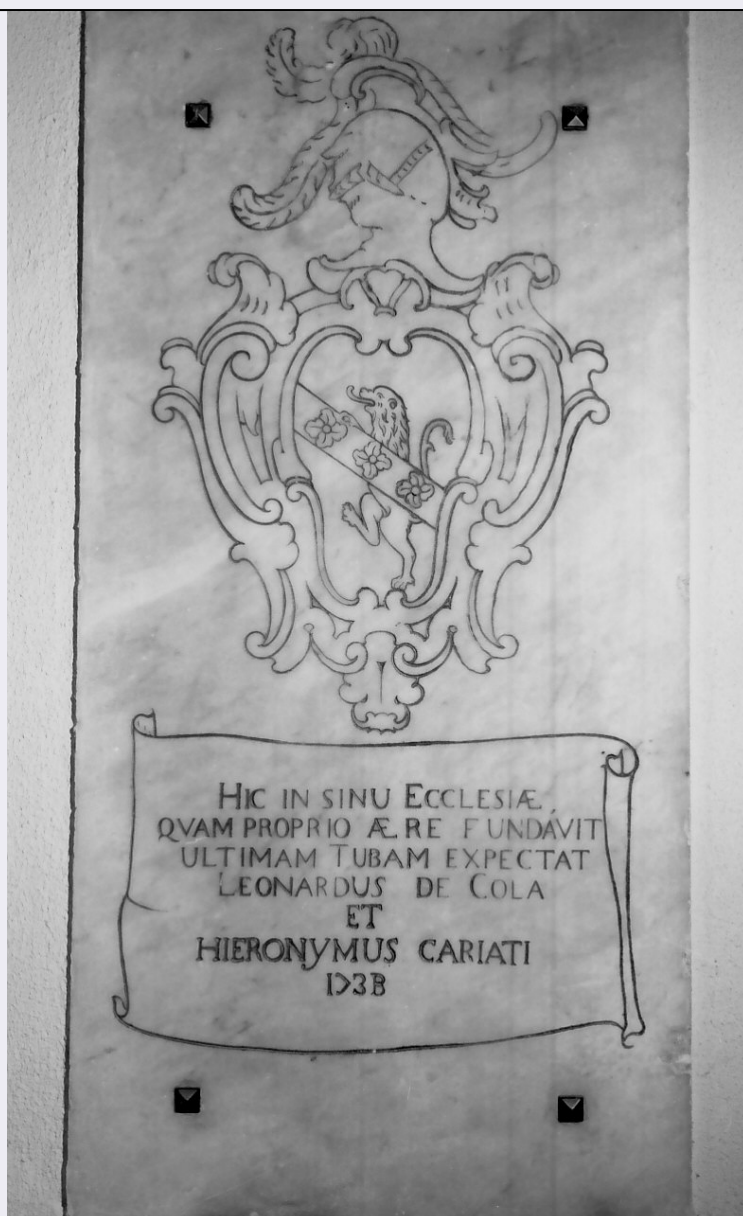 HIC IN SINU ECCLESIÆ
QVAM PROPRIO ÆRE FUNDAVIT
ULTIMAM TUBAM EXPECTAT
LEONARDUS DE COLA
ET
HIERONYMUS CARIATI
1738